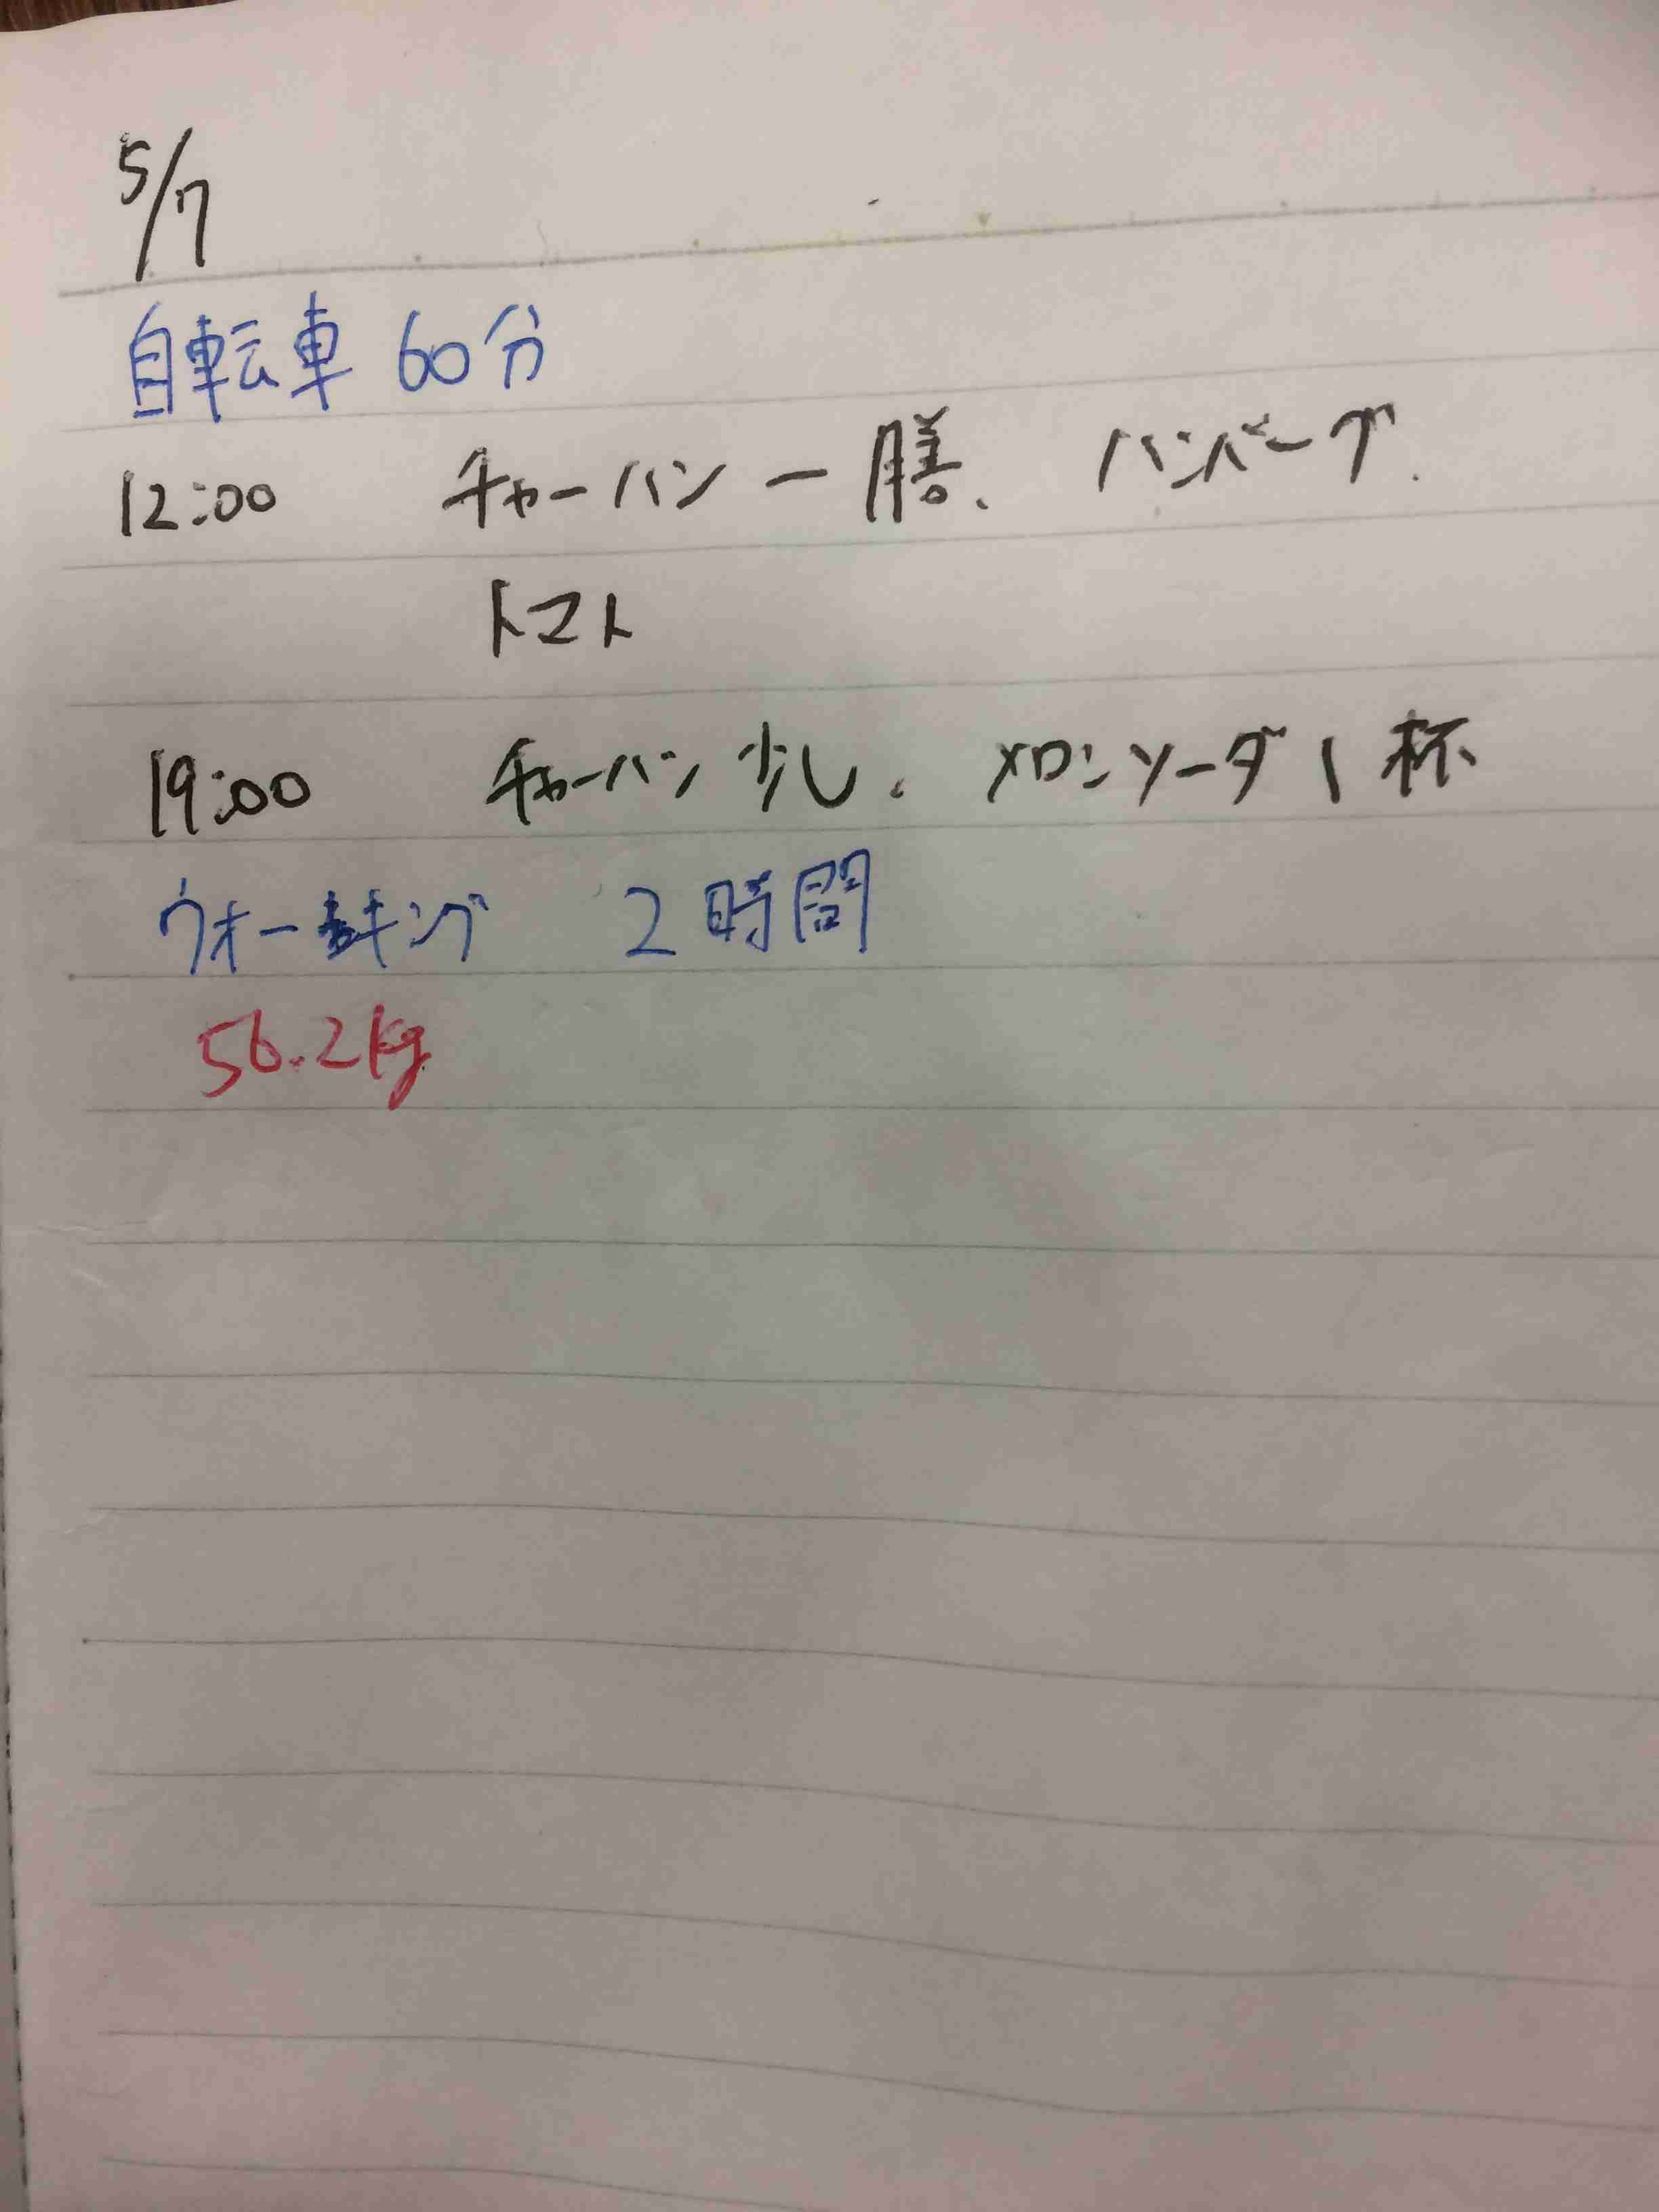 5/7
自転車 60分
12:00 チャーハン一膳、ハンバーグ.
トマト
19:00 チャーハン少し. メロンソーダ1杯
ウォーキング 2時間
56.2kg